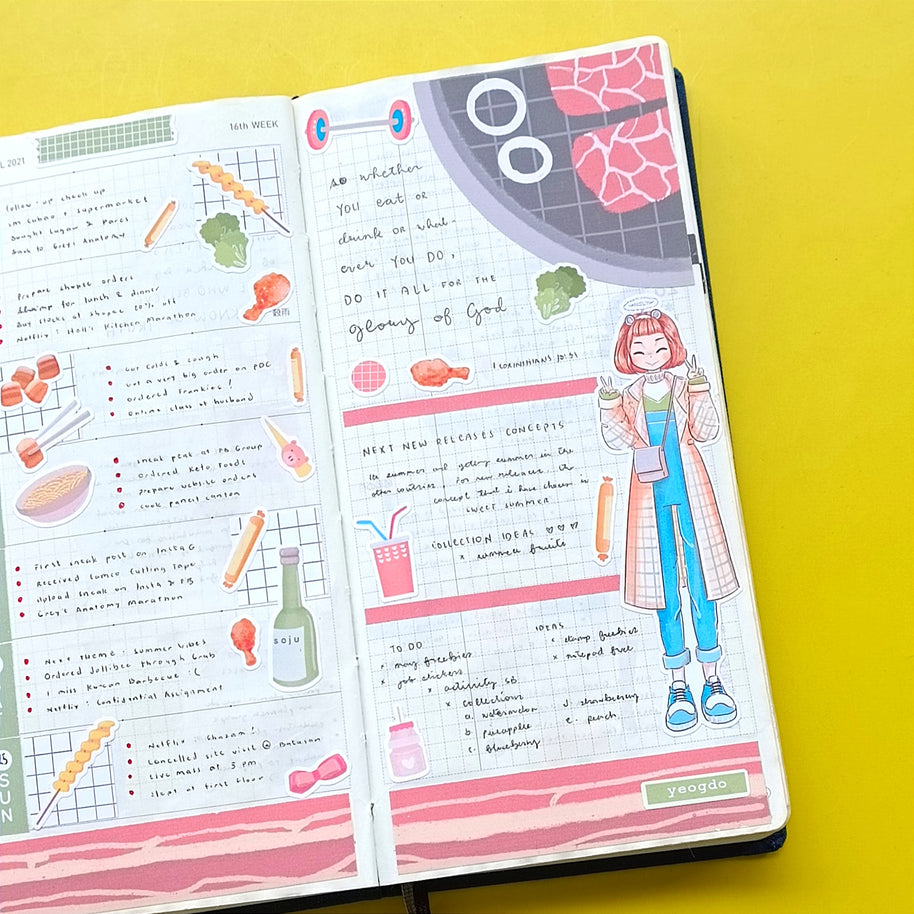 L 2021
16th WEEK
follow-up check up
Sm Cubao + Supermarket
Bought Sugar & Parcs
Back to Grey's Anatomy
Prepare shopee orders
Shrimp for lunch & dinner
Buy stocks at shopee 20% off
Netflix : Hell's Kitchen Marathon
穀雨
Got colds & cough
Not a very big order on PDC
Ordered Frankies!
Online class of husband
Sneak peak at FB Group
Ordered Keto Foods
Prepare website orders
Cook pancit canton
First sneak post on Insta G
Received Lomeo Cutting Tape
Upload sneak on Insta & FB
Grey's Anatomy Marathon
Next Theme : Summer Vibes
Ordered Jollibee through Grab
I miss Korean Barbecue :(
Netflix : Confidential Assignment
soju
Netflix : Shazam!
Cancelled site visit @ Batasan
Live mass at 5 pm
Slept at first floor
SUN
so whether
you eat or
drink or what-
ever you do,
do it all for the
glory of God
1 Corinthians 10:31
NEXT NEW RELEASES CONCEPTS
its summer and getting summer in the
other countries for new releases. The
concept that i have chosen is
SWEET SUMMER
COLLECTION IDEAS ♡♡♡
x summer fruits
TO DO
x may freebies
x job stickers
x activity SB
x collections
a. watermelon
b. pineapple
c. blueberry
d. strawberry
e. peach
IDEAS
x stamp freebies
x notepad
yeogdo